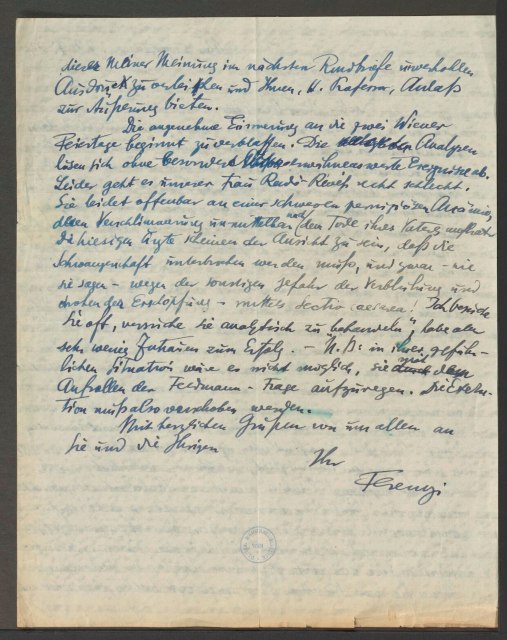 dieser meiner Meinung im nächsten Rundbriefe unverhohlen
Ausdruck zu verleihen und Ihnen, H. Professor, Anlaß
zur Äußerung bieten.
Die angenehme Erinnerung an die zwei Wiener
Feiertage beginnt zu verblassen. Die Analysen
lösen sich ohne besonders erwähnenswerte Ereignisse ab.
Leider geht es unserer Frau Radó-Révész recht schlecht.
Sie leidet offenbar an einer schweren perniziösen Anämie,
deren Verschlimmerung unmittelbar nach dem Tode ihres Vaters auftrat
Die hiesigen Ärzte scheinen der Ansicht zu sein, daß die
Schwangerschaft unterbrochen werden muß, und zwar – wie
sie sagen – wegen der sonstigen Gefahr der Verblutung und
drohender Erschöpfung – mittels sectio caesarea! Ich besuche
Sie oft, versuche sie analytisch zu behandeln, habe aber
sehr wenig Zutrauen zum Erfolg. – N.B: in ihrer gefähr-
lichen Situation wäre es nicht möglich, sie mit dem
Aufrollen der Feldmann-Frage aufzuregen. Die
tion muß also verschoben werden.
Mit herzlichen Grüßen von uns allen an
Sie und die Ihrigen
Ihr
Ferenczi